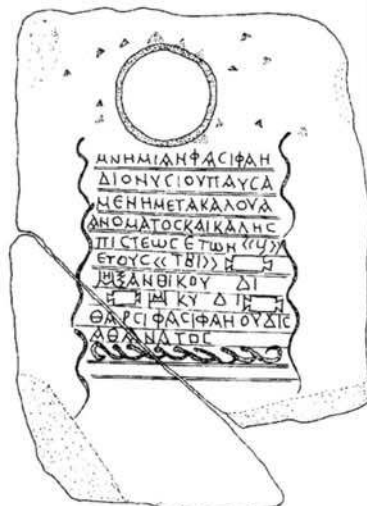 ΜΝΗΜΙΑΝΦΑϹΙΦΑΗ
ΔΙΟΝΥϹΙΟΥΠΑΥϹΑ
ΜΕΝΗΜΕΤΑΚΑΛΟΥΑ
ΑΝΟΜΑΤΟϹΚΑΙΚΑΛΗϹ
ΠΙϹΤΕωϹΕΤωΗ «Ч»
ΕΤΟΥϹ «ΤΒΙ»
ΜΞΑΝΘΙΚΟΥ ΔΙ
Μ ΚΥ ΔΙ
ΘΑΡϹΙΦΑϹΙΦΑΗΟΥΔΙϹ
ΑΘΑΝΑΤΟϹ